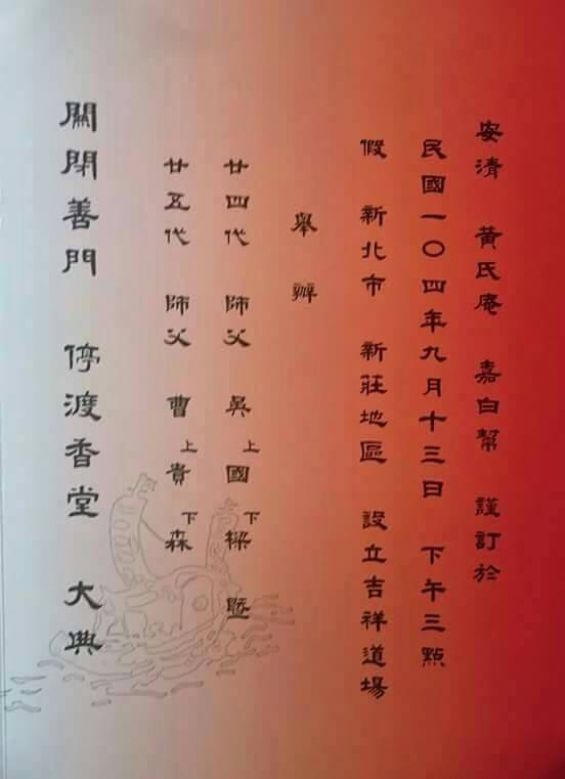 安清 黃氏庵 嘉白幫 謹訂於
民國一〇四年九月十三日 下午三點
假 新北市 新莊地區 設立吉祥道場
舉辦
廿四代 師父 吳上國下樑 暨
廿五代 師父 曹上貴下森
關閉善門 停渡香堂 大典